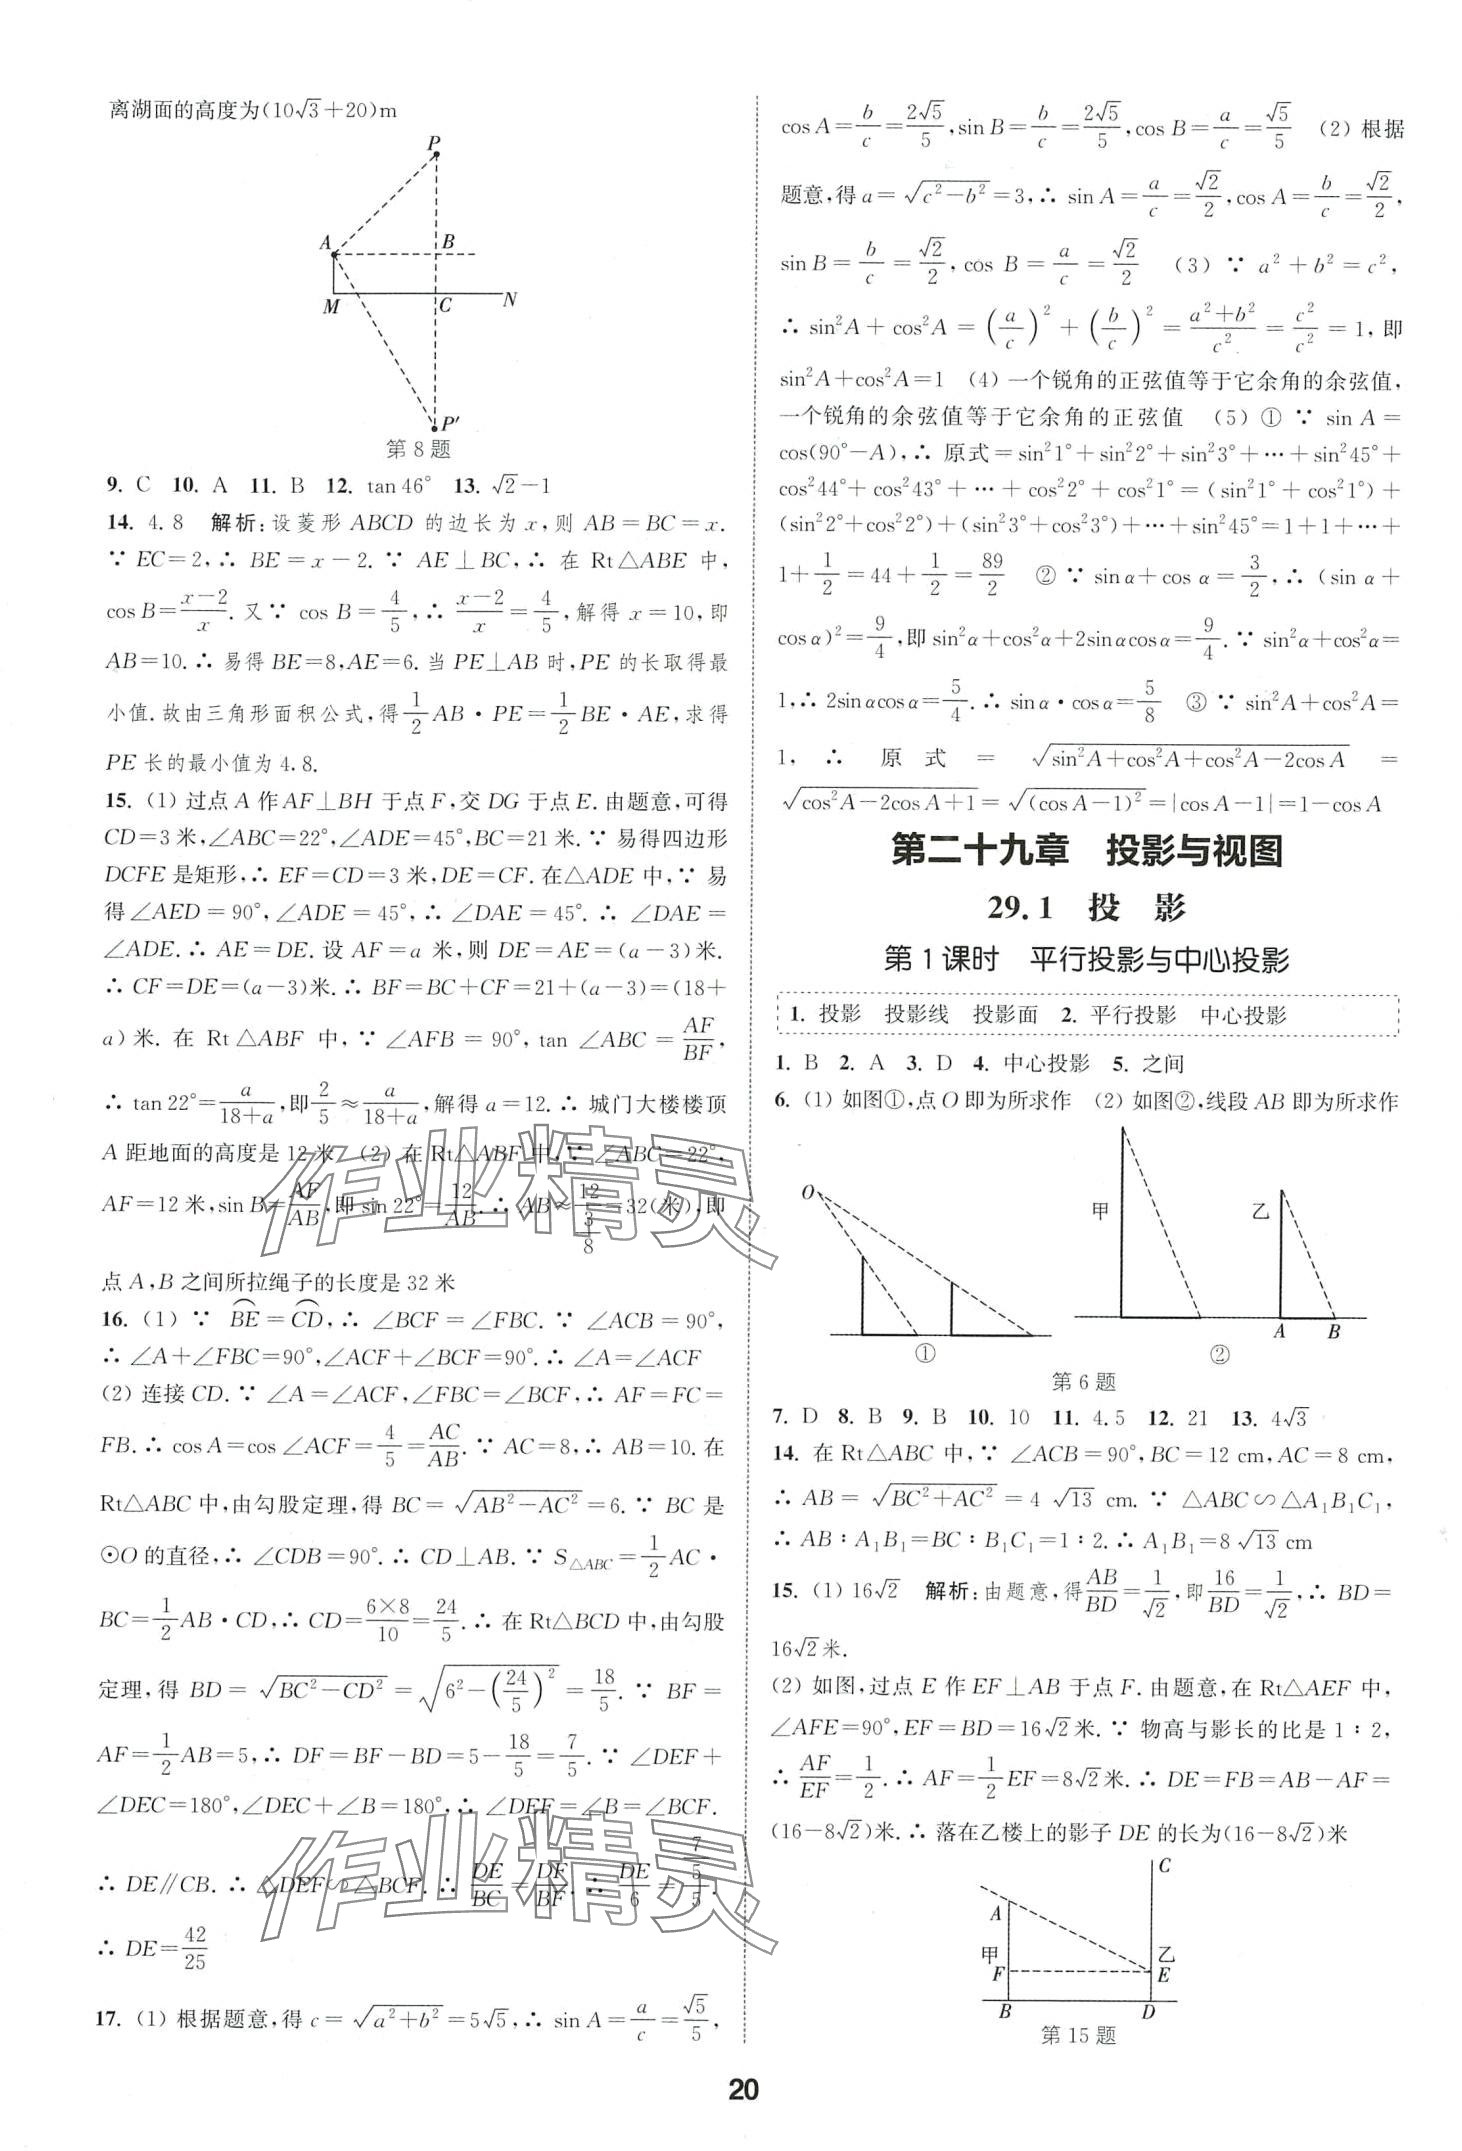 离湖面的高度为(10√3+20)m
P
A
B
M
C
N
P′
第8题
9. C 10. A 11. B 12. tan 46° 13. √2−1
14. 4.8 解析:设菱形 ABCD 的边长为 x,则 AB=BC=x.
∵ EC=2,∴ BE=x−2.∵ AE⊥BC,∴ 在 Rt△ABE 中,
cos B=(x−2)/x.又∵ cos B=4/5,∴ (x−2)/x=4/5,解得 x=10,即
AB=10.∴ 易得 BE=8,AE=6.当 PE⊥AB 时,PE 的长取得最
小值.故由三角形面积公式,得 1/2 AB·PE=1/2 BE·AE,求得
PE 长的最小值为 4.8.
15. (1) 过点 A 作 AF⊥BH 于点 F,交 DG 于点 E.由题意,可得
CD=3 米,∠ABC=22°,∠ADE=45°,BC=21 米.∵ 易得四边形
DCFE 是矩形,∴ EF=CD=3 米,DE=CF.在△ADE 中,∵ 易
得∠AED=90°,∠ADE=45°,∴ ∠DAE=45°.∴ ∠DAE=
∠ADE.∴ AE=DE.设 AF=a 米,则 DE=AE=(a−3)米.
∴ CF=DE=(a−3)米.∴ BF=BC+CF=21+(a−3)=(18+
a)米.在 Rt△ABF 中,∵ ∠AFB=90°,tan ∠ABC=AF/BF,
∴ tan 22°=a/(18+a),即 2/5≈a/(18+a),解得 a=12.∴ 城门大楼楼顶
A 距地面的高度是 12 米 (2) 在 Rt△ABF 中,∵ ∠ABC=22°,
AF=12 米,sin B=AF/AB,即 sin 22°=12/AB.∴ AB≈12/(3/8)=32(米),即
点 A,B 之间所拉绳子的长度是 32 米
16. (1) ∵ B͡E=C͡D,∴ ∠BCF=∠FBC.∵ ∠ACB=90°,
∴ ∠A+∠FBC=90°,∠ACF+∠BCF=90°.∴ ∠A=∠ACF
(2) 连接 CD.∵ ∠A=∠ACF,∠FBC=∠BCF,∴ AF=FC=
FB.∴ cos A=cos ∠ACF=4/5=AC/AB.∵ AC=8,∴ AB=10.在
Rt△ABC 中,由勾股定理,得 BC=√(AB²−AC²)=6.∵ BC 是
⊙O 的直径,∴ ∠CDB=90°.∴ CD⊥AB.∵ S△ABC=1/2 AC·
BC=1/2 AB·CD,∴ CD=(6×8)/10=24/5.∴ 在 Rt△BCD 中,由勾股
定理,得 BD=√(BC²−CD²)=√(6²−(24/5)²)=18/5.∵ BF=
AF=1/2 AB=5,∴ DF=BF−BD=5−18/5=7/5.∵ ∠DEF+
∠DEC=180°,∠DEC+∠B=180°,∴ ∠DEF=∠B=∠BCF.
∴ DE∥CB.∴ △DEF∽△BCF.∴ DE/BC=DF/BF.∴ DE/6=(7/5)/5.
∴ DE=42/25
17. (1) 根据题意,得 c=√(a²+b²)=5√5,∴ sin A=a/c=√5/5,
cos A=b/c=2√5/5,sin B=b/c=2√5/5,cos B=a/c=√5/5 (2) 根据
题意,得 a=√(c²−b²)=3,∴ sin A=a/c=√2/2,cos A=b/c=√2/2,
sin B=b/c=√2/2,cos B=a/c=√2/2 (3) ∵ a²+b²=c²,
∴ sin²A+cos²A=(a/c)²+(b/c)²=(a²+b²)/c²=c²/c²=1,即
sin²A+cos²A=1 (4) 一个锐角的正弦值等于它余角的余弦值,
一个锐角的余弦值等于它余角的正弦值 (5) ① ∵ sin A=
cos(90°−A),∴ 原式=sin²1°+sin²2°+sin²3°+⋯+sin²45°+
cos²44°+cos²43°+⋯+cos²2°+cos²1°=(sin²1°+cos²1°)+
(sin²2°+cos²2°)+(sin²3°+cos²3°)+⋯+sin²45°=1+1+⋯+
1+1/2=44+1/2=89/2 ② ∵ sin α+cos α=3/2,∴ (sin α+
cos α)²=9/4,即 sin²α+cos²α+2sin αcos α=9/4.∵ sin²α+cos²α=
1,∴ 2sin αcos α=5/4.∴ sin α·cos α=5/8 ③ ∵ sin²A+cos²A=
1,∴ 原式=√(sin²A+cos²A+cos²A−2cos A)=
√(cos²A−2cos A+1)=√((cos A−1)²)=|cos A−1|=1−cos A
第二十九章 投影与视图
29.1 投 影
第1课时 平行投影与中心投影
1. 投影 投影线 投影面 2. 平行投影 中心投影
1. B 2. A 3. D 4. 中心投影 5. 之间
6. (1) 如图①,点 O 即为所求作 (2) 如图②,线段 AB 即为所求作
O
甲
乙
A
B
①
②
第6题
7. D 8. B 9. B 10. 10 11. 4.5 12. 21 13. 4√3
14. 在 Rt△ABC 中,∵ ∠ACB=90°,BC=12 cm,AC=8 cm,
∴ AB=√(BC²+AC²)=4√13 cm.∵ △ABC∽△A₁B₁C₁,
∴ AB∶A₁B₁=BC∶B₁C₁=1∶2.∴ A₁B₁=8√13 cm
15. (1) 16√2 解析:由题意,得 AB/BD=1/√2,即 16/BD=1/√2,∴ BD=
16√2米.
(2) 如图,过点 E 作 EF⊥AB 于点 F.由题意,在 Rt△AEF 中,
∠AFE=90°,EF=BD=16√2米.∵ 物高与影长的比是 1∶2,
∴ AF/EF=1/2.∴ AF=1/2 EF=8√2米.∴ DE=FB=AB−AF=
(16−8√2)米.∴ 落在乙楼上的影子 DE 的长为(16−8√2)米
C
A
甲
乙
F
E
B
D
第15题
20
作业精灵
作业精灵